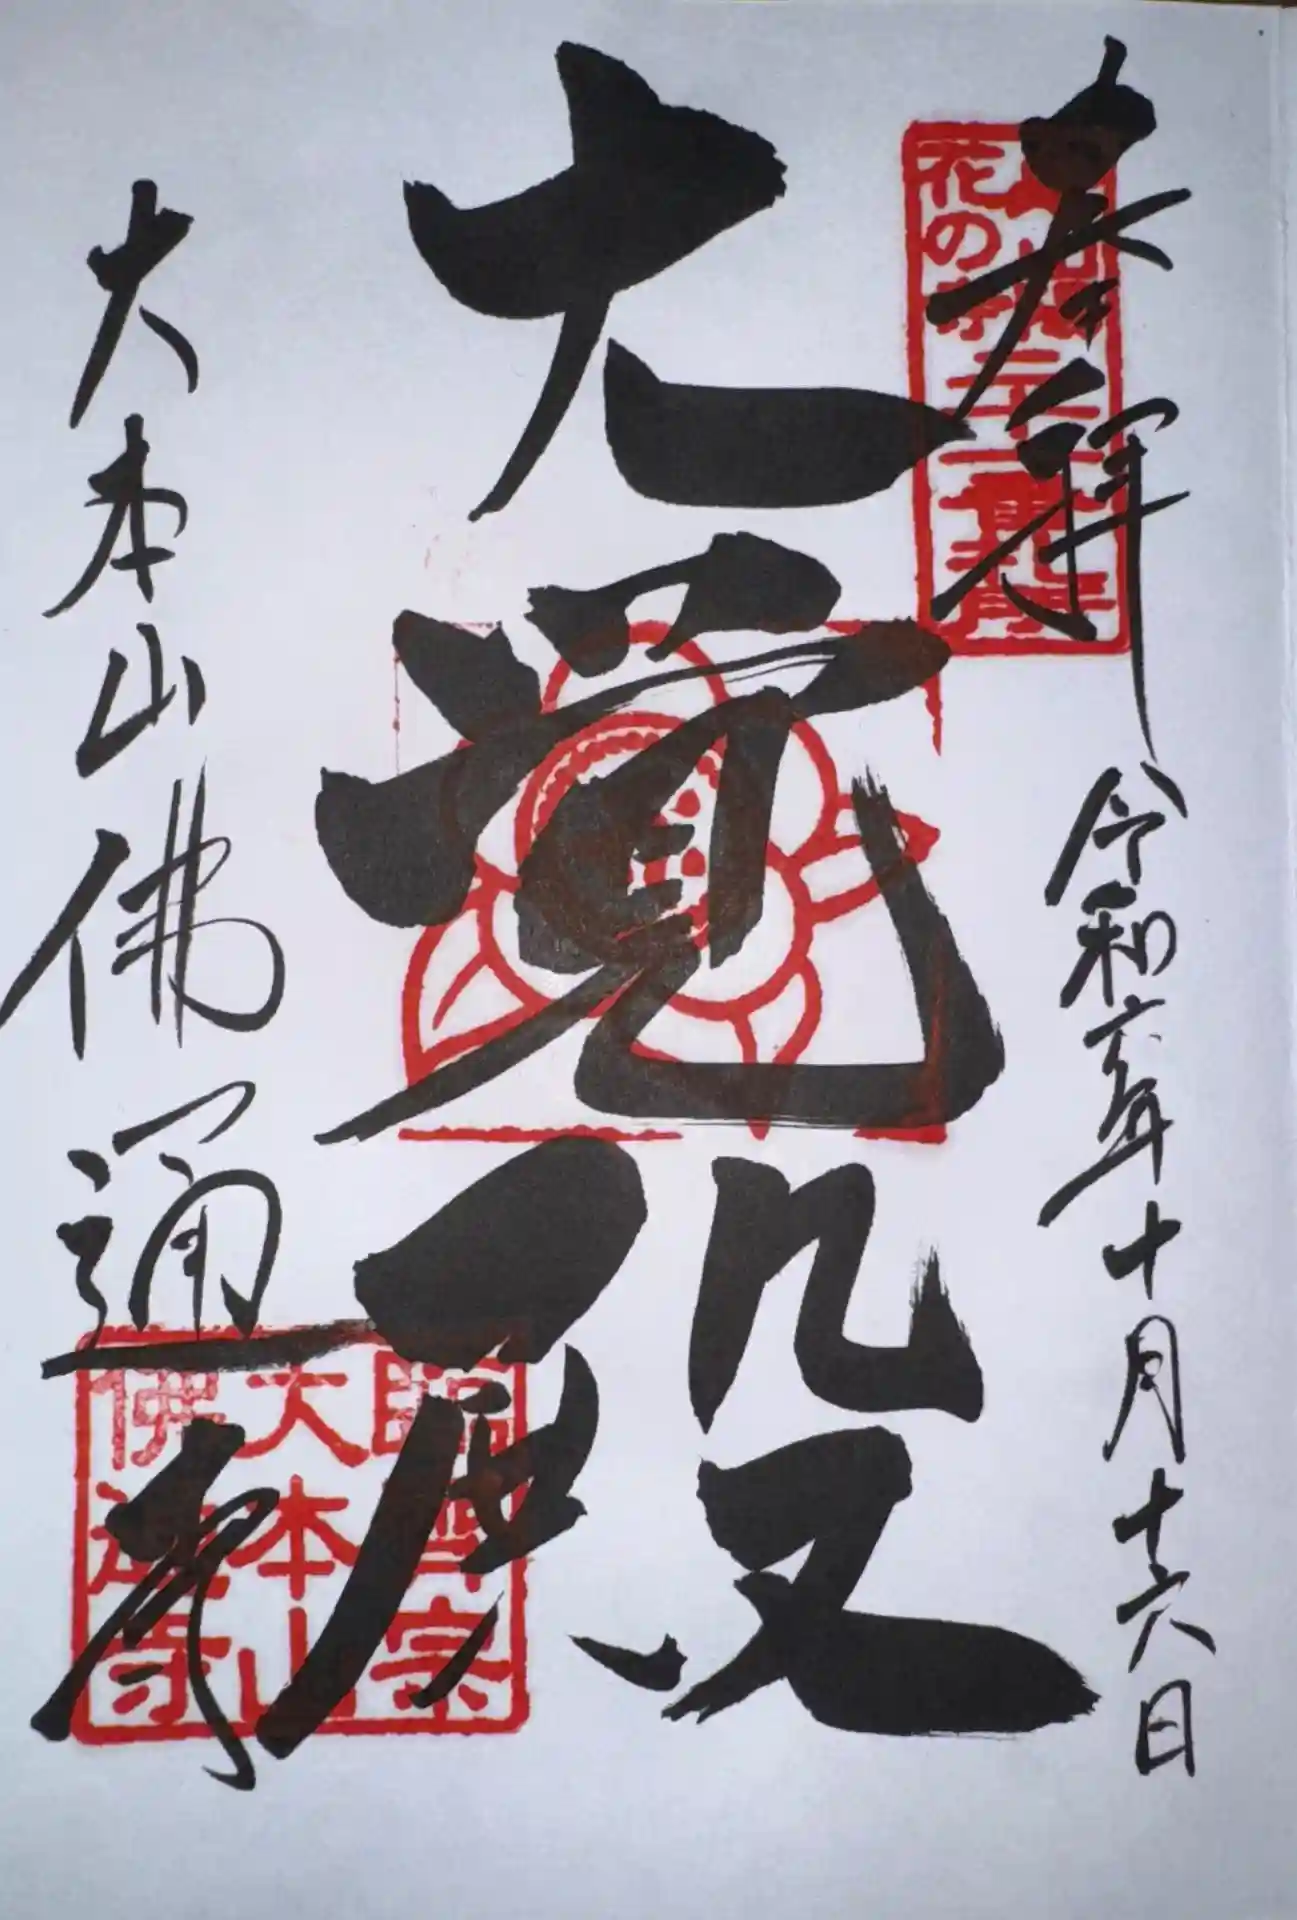 奉拝 令和六年十月十六日
花の
二十一番札所
大覚殿
大本山佛通寺
臨済宗
大本山
佛通寺